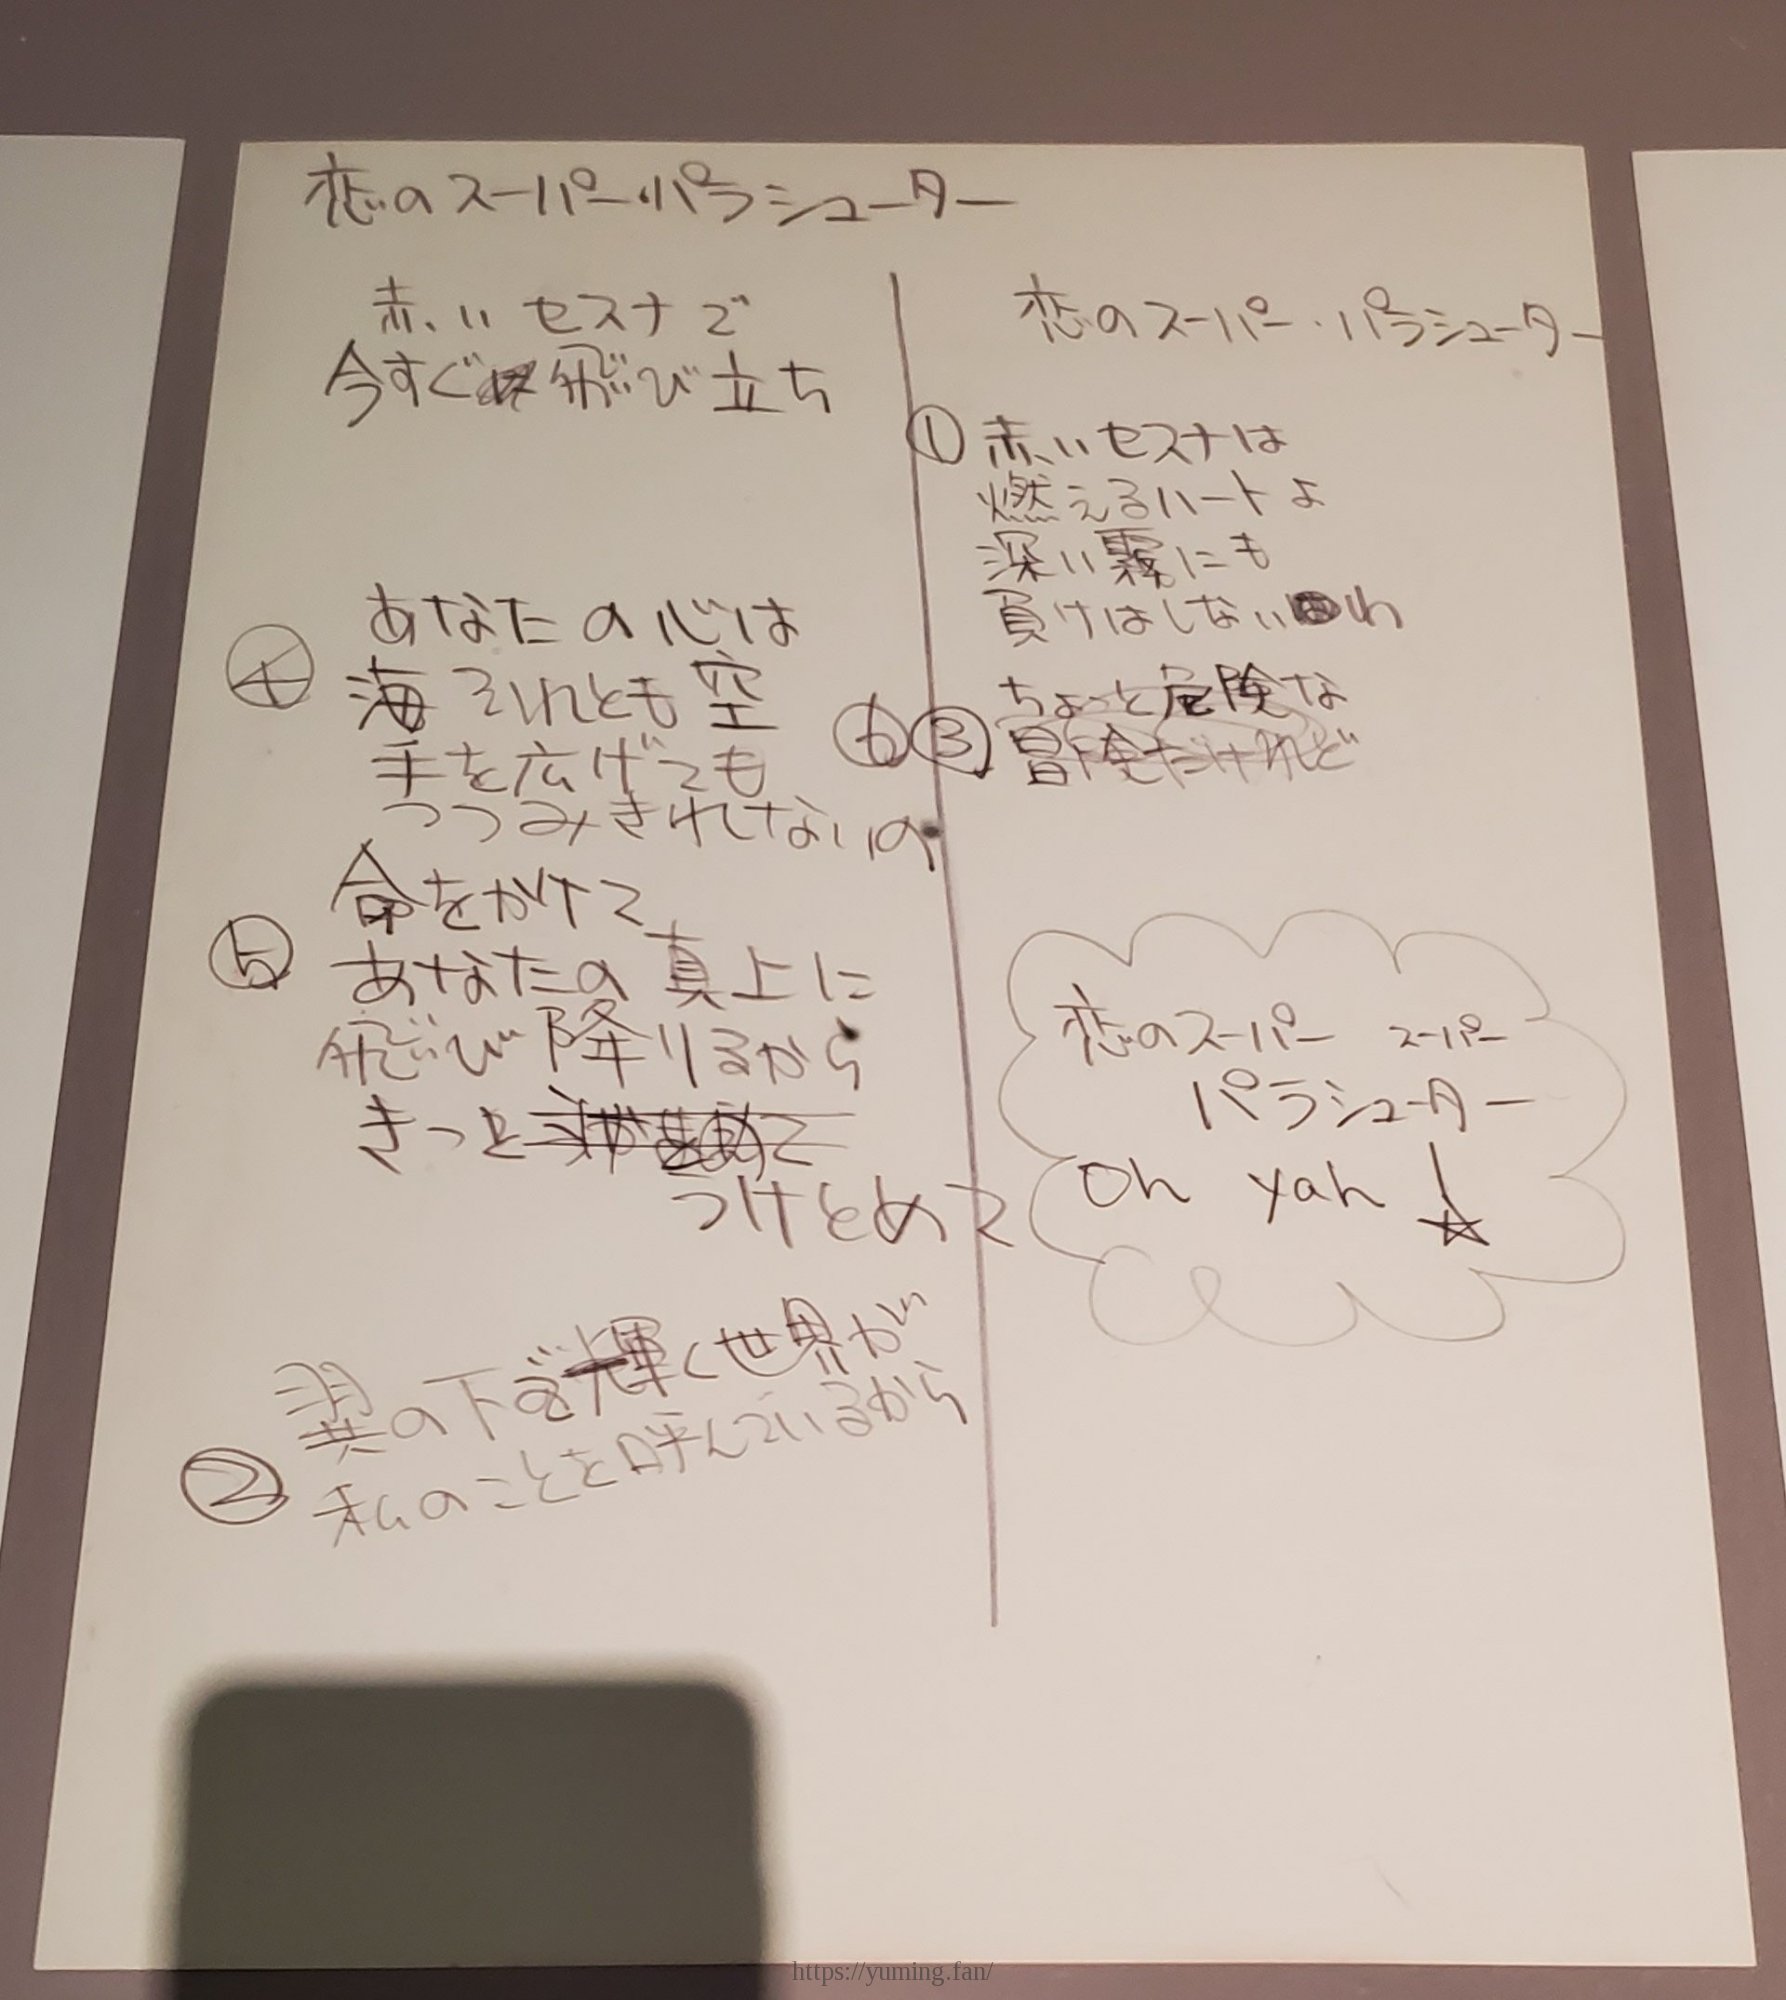 恋のスーパー・パラシューター
赤いセスナで
今すぐ飛び立ち
④
あなたの心は
海それとも空
手を広げても
つつみきれないの
⑤
命をかけて
あなたの真上に
飛び降りるから
きっと
うけとめて
②
翼の下で輝く世界が
私のことを呼んでいるから
恋のスーパー・パラシューター
①
赤いセスナは
燃えるハートよ
深い霧にも
負けはしないわ
⑥③
ちょっと危険な
冒険だけれど
恋のスーパー スーパー
パラシューター
Oh yah !
https://yuming.fan/